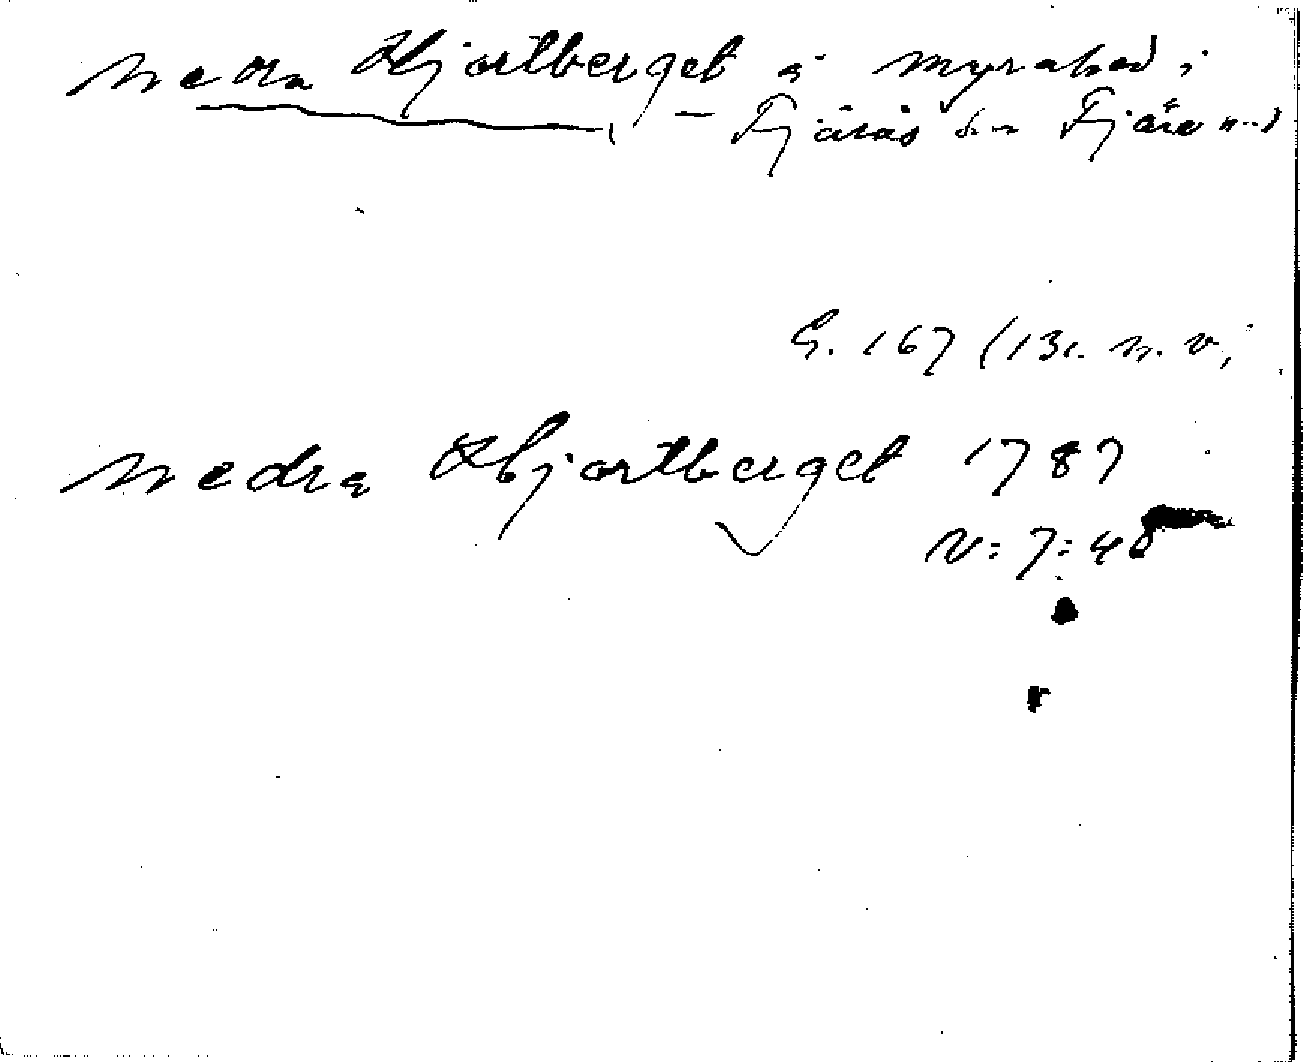 Nedra Hjortberget å Myrahed i
— Fjärås sn Fjäre hd
G. 167 (131. n. v;
Nedra Hjortberget 1787
v: 7: 48